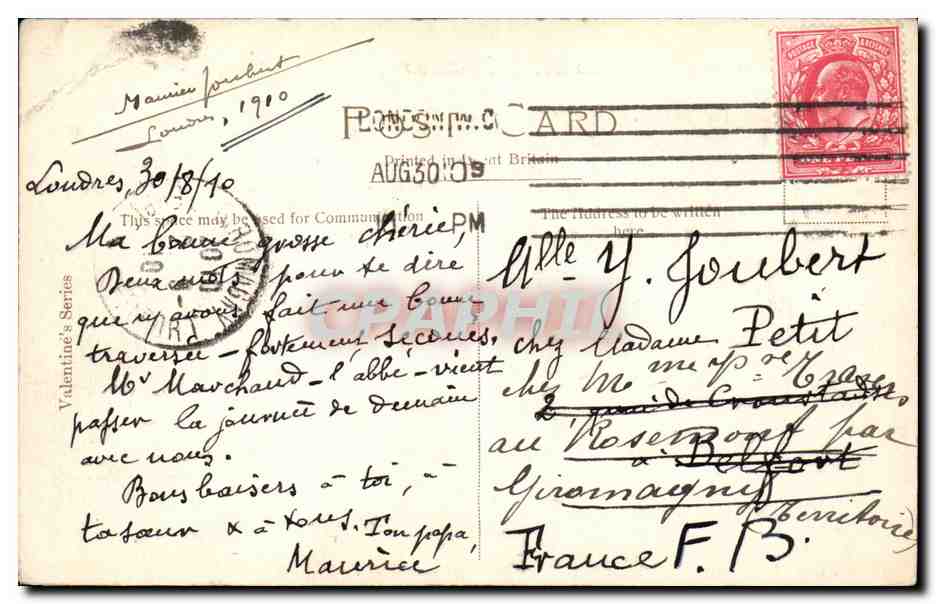 Maurice Joubert
Londres, 1910
POST CARD
LONDON. W.C
Printed in Great Britain
AUG 30 10
PM
POSTAGE REVENUE
ONE PENNY
This space may be used for Communication
The Address to be written
here
Valentine's Series
GIROMAGNY
Londres, 30/8/10
Ma bonne grosse chérie,
Deux mots pour te dire
que n/ avons fait une bonne
traversée - fortement secoués.
Mr Marchand - l'abbé - vient
passer la journée de demain
avec nous.
Bons baisers à toi, à
ta sœur & à tous. Ton papa,
Maurice
Mlle Y. Joubert
chez Madame Petit
chez Mme
2, quai de
au Rosemont par
à Belfort
Giromagny
Territoire
France F. B.
CPAPHIL